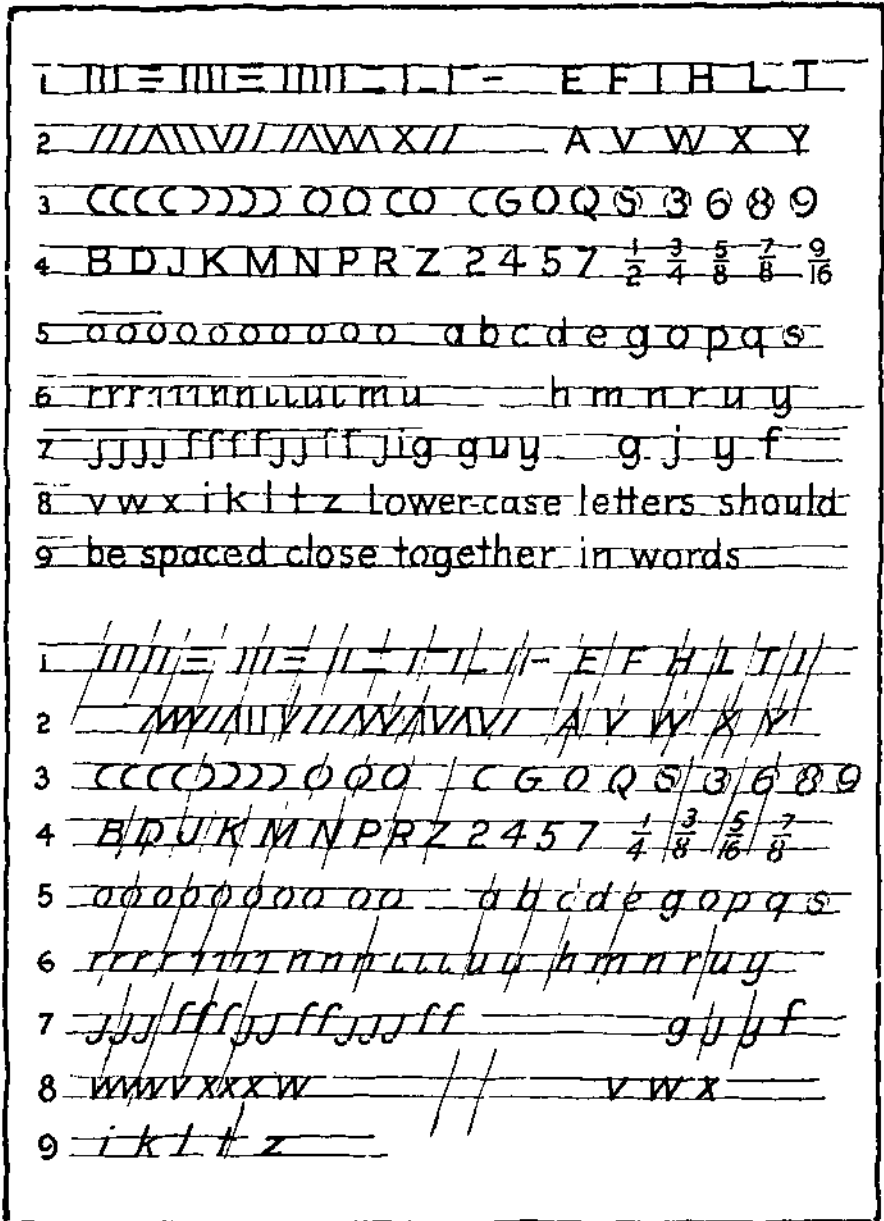 1 E F I H L T
2 A V W X Y
3 C C C C O O C O C G O Q S 3 6 8 9
4 B D J K M N P R Z 2 4 5 7 1/2 3/4 5/8 7/8 9/16
5 o o o o o o o o o o a b c d e g o p q s
6 r r r 1 1 1 n n ι ι u ι m u h m n r u y
7 ȷ ȷ ȷ ȷ f f f f ȷ ȷ f f jig guy g j y f
8 v w x i k l t z Lower-case letters should
9 be spaced close together in words
1 E F H L T I
2 A V W X Y
3 C C C C O O O C G O Q S 3 6 8 9
4 B D U K M N P R Z 2 4 5 7 1/4 3/8 5/16 7/8
5 a o o b o o o o o a a b c d e g o p q s
6 r r r r 1 1 1 1 n n n ι ι ι u u h m n r u y
7 ȷ ȷ ȷ f f f ȷ ȷ f f ȷ ȷ ȷ f f g j y f
8 w w v x x x w v w x
9 i k l t z